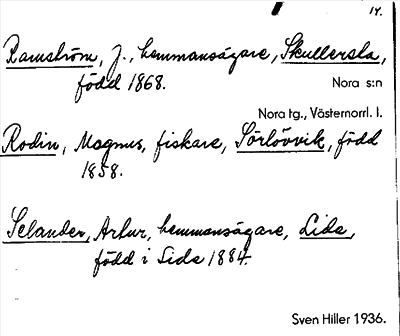 14.
Ramström, J., hemmansägare, Skullersta,
född 1868.
Nora s:n
Nora tg., Västernorrl. l.
Rodin, Magnus, fiskare, Sörlövvik, född
1858.
Selander, Artur, hemmansägare, Lida,
född i Lida 1884.
Sven Hiller 1936.